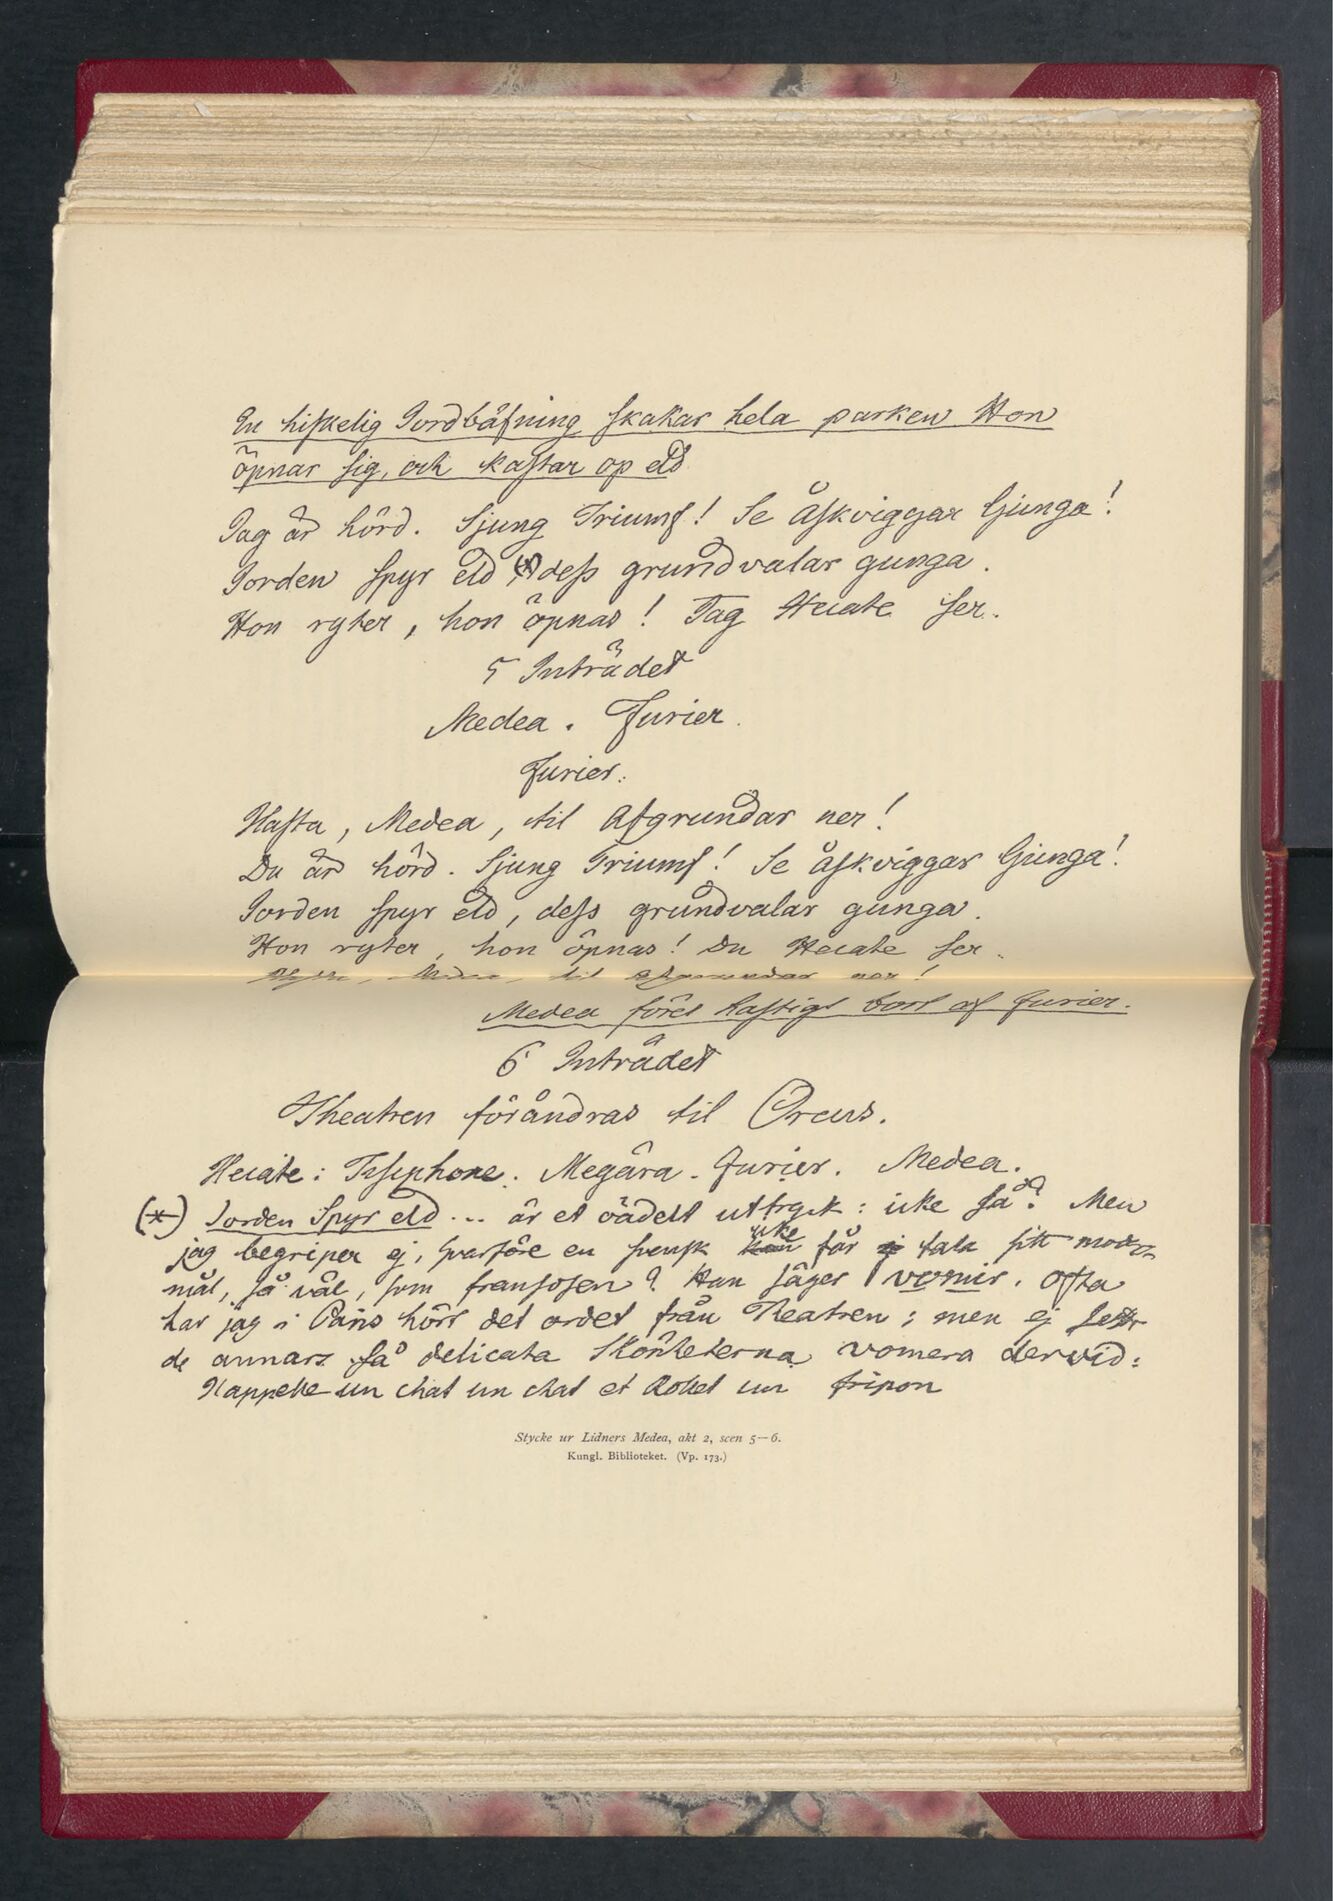 En hiskelig Jordbäfning skakar hela parken Hon
öpnar sig, och kastar op eld
Jag är hörd. Sjung Triumf! Se Åskviggar ljunga!
Jorden spyr eld (*) dess grundvalar gunga.
Hon ryter, hon öpnas! Tag Hecate ser.
5 Inträdet
Medea. Furier.
Furier.
Hasta, Medea, til Afgrundar ner!
Du är hörd. Sjung Triumf! Se åskviggar ljunga!
Jorden spyr eld, dess grundvalar gunga.
Hon ryter, hon öpnas! Du Hecate ser.
Medea, til afgrundar ner!
Medea föres hastigt bort af Furier.
6 Inträdet
Theatren förändras til Orcus.
Hecate: Tisiphone. Megära. Furier. Medea.
(*) Jorden Spyr eld ... är et oädelt uttryck: icke så? Men
jag begriper ej, hvarföre en svensk icke får tala sitt moders
mål, så väl, som fransosen? Han säger vomir. Ofta
har jag i Paris hört det ordet från Theatren; men ej sett
de annars så delicata Skönheterna vomera dervid:
J'appelle un chat un chat et Rolet un fripon
Stycke ur Lidners Medea, akt 2, scen 5—6.
Kungl. Biblioteket. (Vp. 173.)